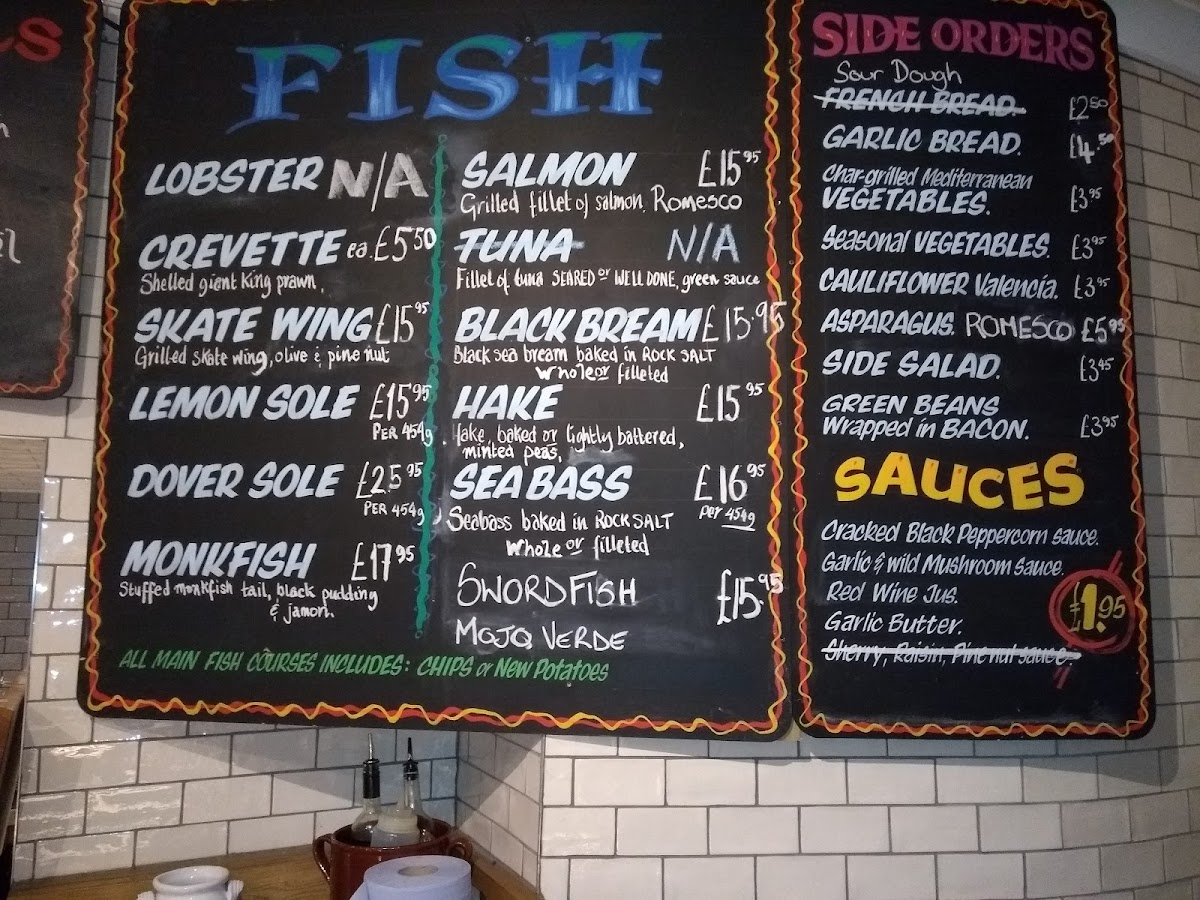 FISH
LOBSTER N/A
CREVETTE ea. £5.50
Shelled giant King prawn,
SKATE WING £15.95
Grilled skate wing, olive & pine nut
LEMON SOLE £15.95
PER 454g
DOVER SOLE £25.95
PER 454g
MONKFISH £17.95
Stuffed monkfish tail, black pudding
& jamon.
SALMON £15.95
Grilled fillet of salmon, Romesco
TUNA N/A
Fillet of tuna SEARED or WELL DONE, green sauce
BLACK BREAM £15.95
Black sea bream baked in ROCK SALT
whole or filleted
HAKE £15.95
Hake, baked or lightly battered,
minted peas,
SEA BASS £16.95
per 454g
Seabass baked in ROCK SALT
whole or filleted
SWORDFISH £15.95
MOJO VERDE
ALL MAIN FISH COURSES INCLUDES: CHIPS or New Potatoes
SIDE ORDERS
Sour Dough
FRENCH BREAD. £2.50
GARLIC BREAD. £4.50
Char-grilled Mediterranean
VEGETABLES. £3.95
Seasonal VEGETABLES. £3.95
CAULIFLOWER Valencía. £3.95
ASPARAGUS. ROMESCO £5.95
SIDE SALAD. £3.45
GREEN BEANS
Wrapped in BACON. £3.95
SAUCES
Cracked Black Peppercorn sauce.
Garlic & wild Mushroom sauce.
Red Wine Jus.
£1.95
Garlic Butter.
Sherry, Raisin, Pine nut sauce.